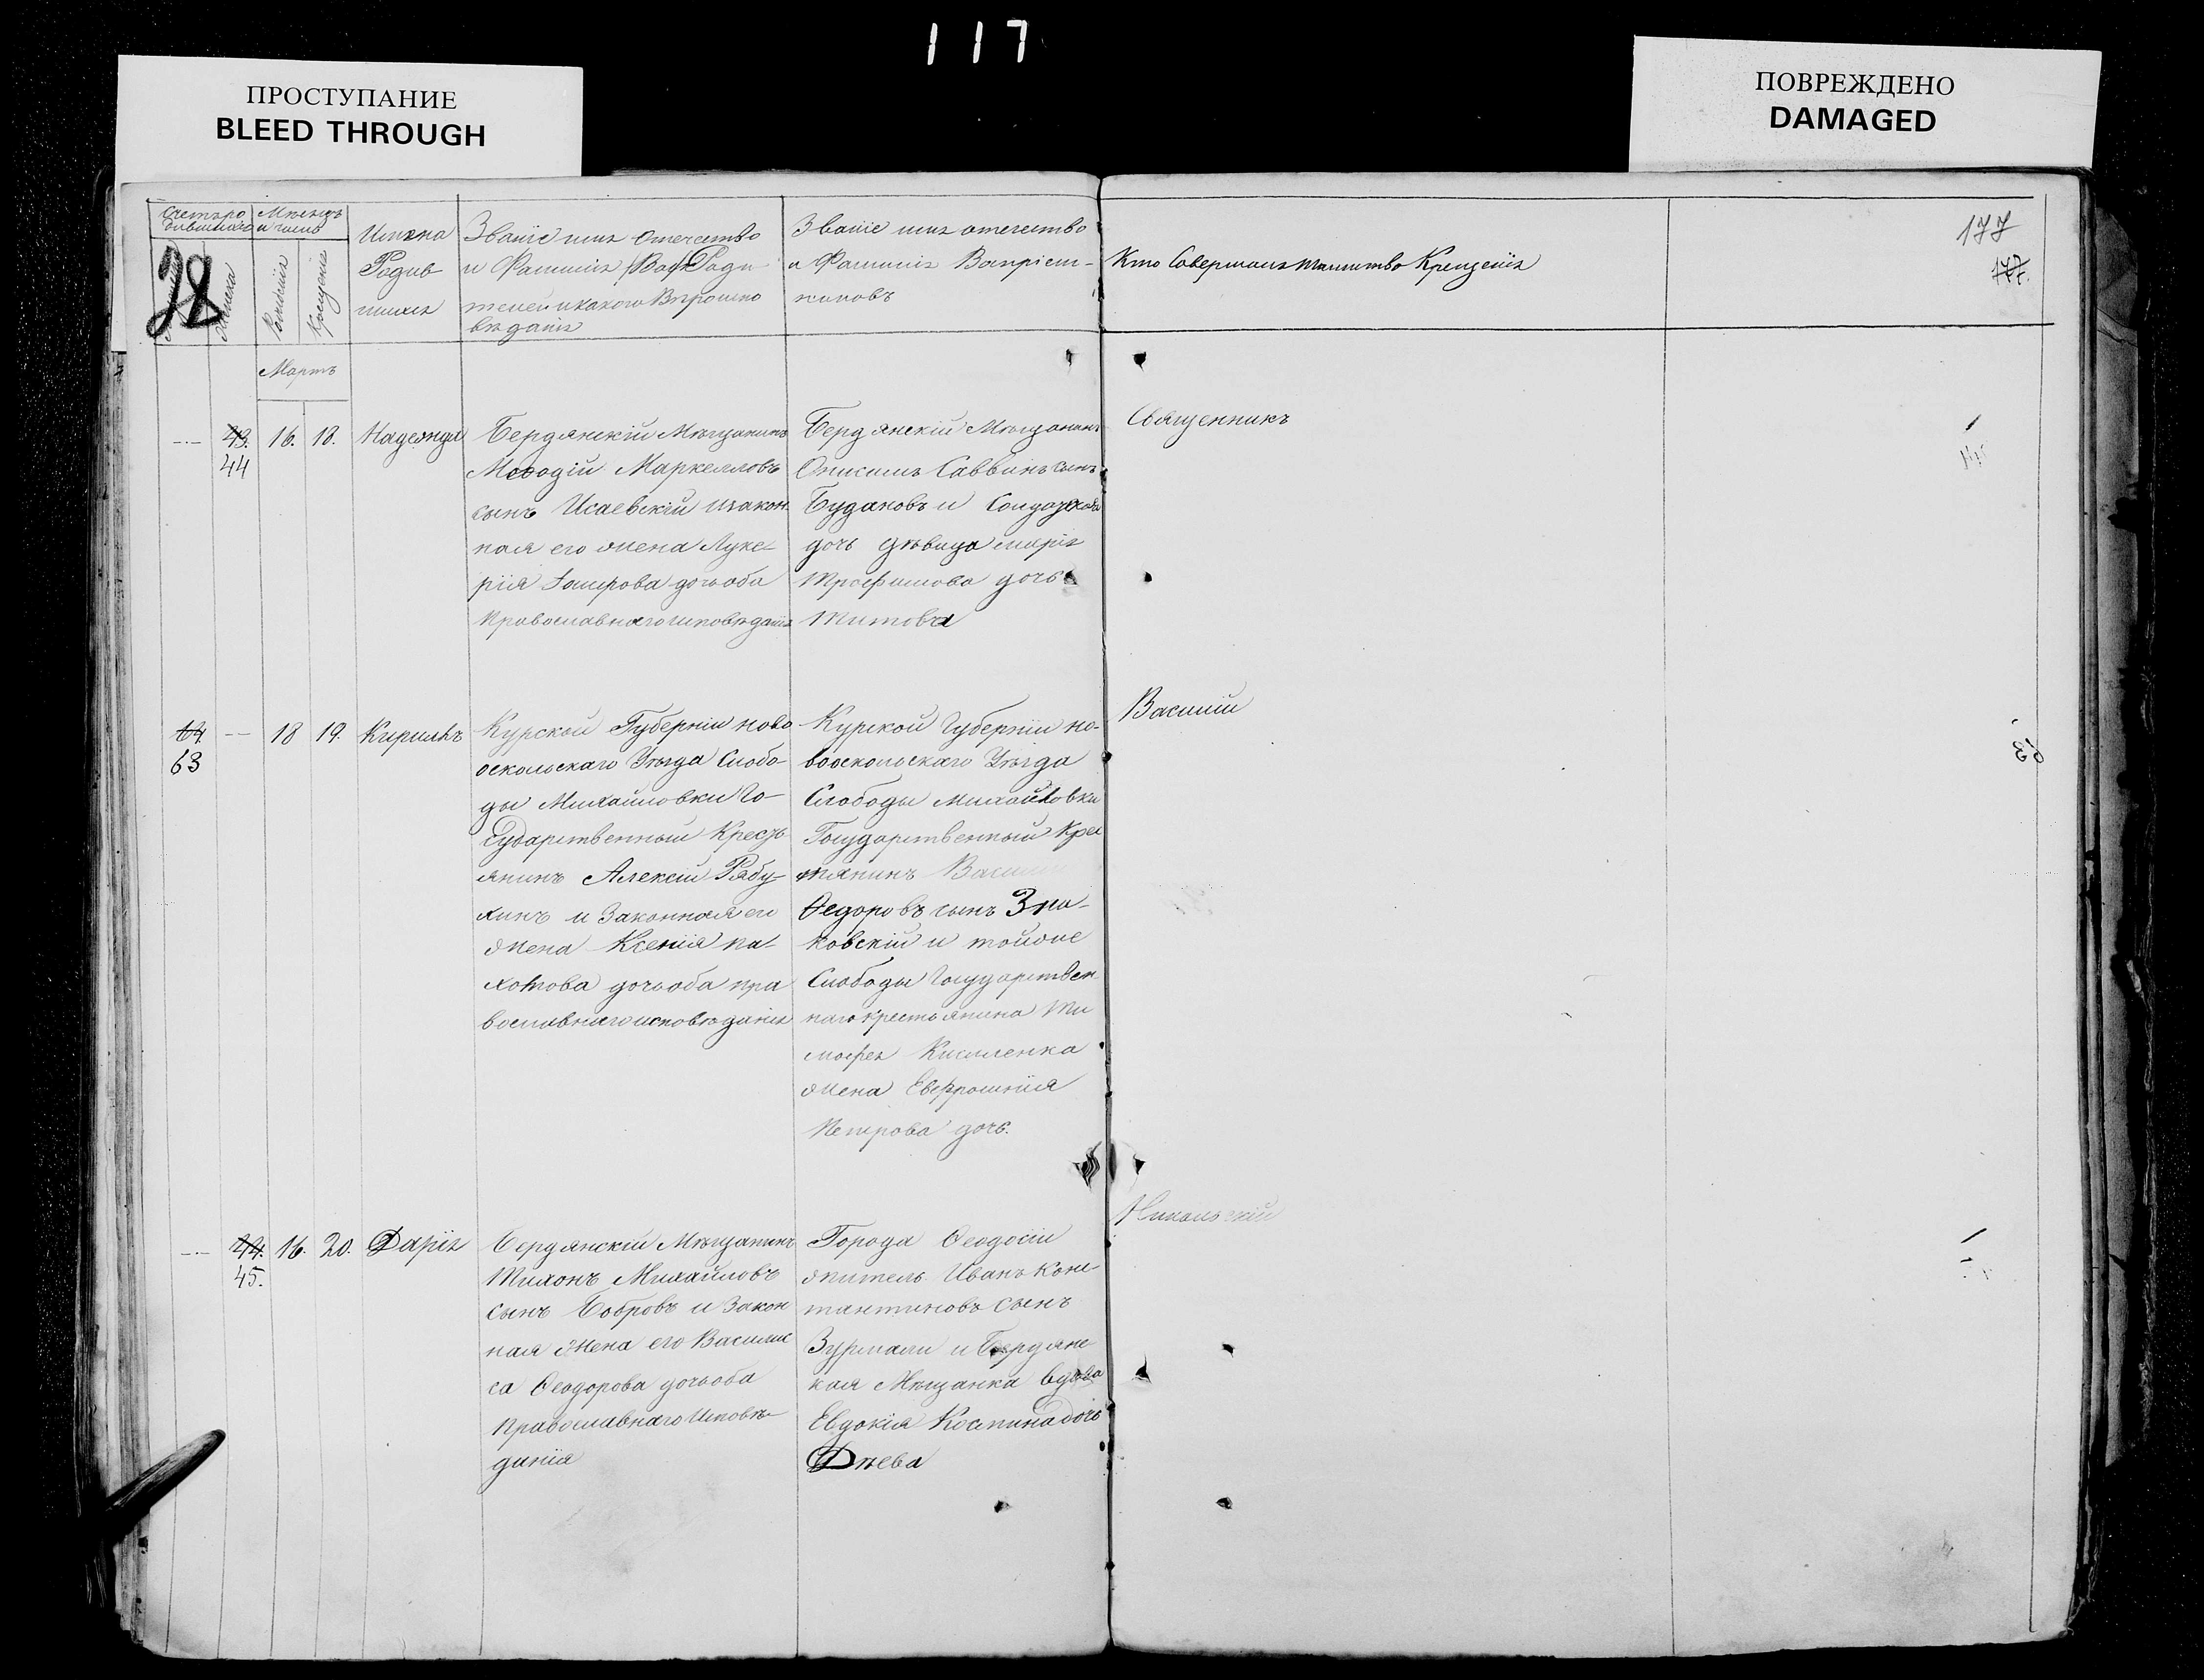 117
ПРОСТУПАНИЕ
BLEED THROUGH
ПОВРЕЖДЕНО
DAMAGED
177
177.
28
Счетъ ро
дившихся
Мѣсяцъ
и число
Рожденія
Крещенія
Имена
Родив
шихся
Званіе имя отечество
и Фамилія
Роди
телей и какого Вѣроиспо
вѣданія
Званіе имя отечество
и Фамилія Воспріем-
никовъ
Кто Совершалъ таинство Крещенія
Мартъ
43.
44
16.
18.
Надежда
Бердянскій Мѣщанинъ
Меѳодій Маркелловъ
сынъ Исаевскій и закон
ная его жена Луке-
рія дочь оба
Православнаго исповѣданія
Бердянскій Мѣщанинъ
Онисимъ Саввинъ сынъ
Будаковъ и
дочь дѣвица марія
Трофимова дочь
Титова
Священникъ
64
63
18
19.
Кириллъ
Курской Губерніи ново
оскольскаго Уѣзда Слобо-
ды Михайловки Го-
сударственный Кресть
янинъ Алексій Рябу-
хинъ и Законная его
жена Ксенія па-
хомова дочь оба пра
вославнаго исповѣданія
Курской Губерніи но-
вооскольскаго Уѣзда
Слободы Михайловки
Государственный Кре
стянинъ Василій
Ѳедоровъ сынъ Зна-
ковскій и тойже
Слободы Государствен-
наго крестьянина Ти
мофея Кисиленка
жена Евфросинія
Петрова дочь.
Василій
63
44.
45.
16.
20.
Дарія
Бердянскій Мѣщанинъ
Тихонъ Михайловъ
сынъ Бобровъ и Закон
ная жена его Васили
са Ѳеодорова дочь оба
Православнаго Исповѣ-
данія
Города Ѳеодосіи
житель Иванъ Конс-
тантиновъ сынъ
Зурмали и Бердянс
кая Мѣщанка вдова
Евдокія Космина дочь
Дѣева
Никольскій